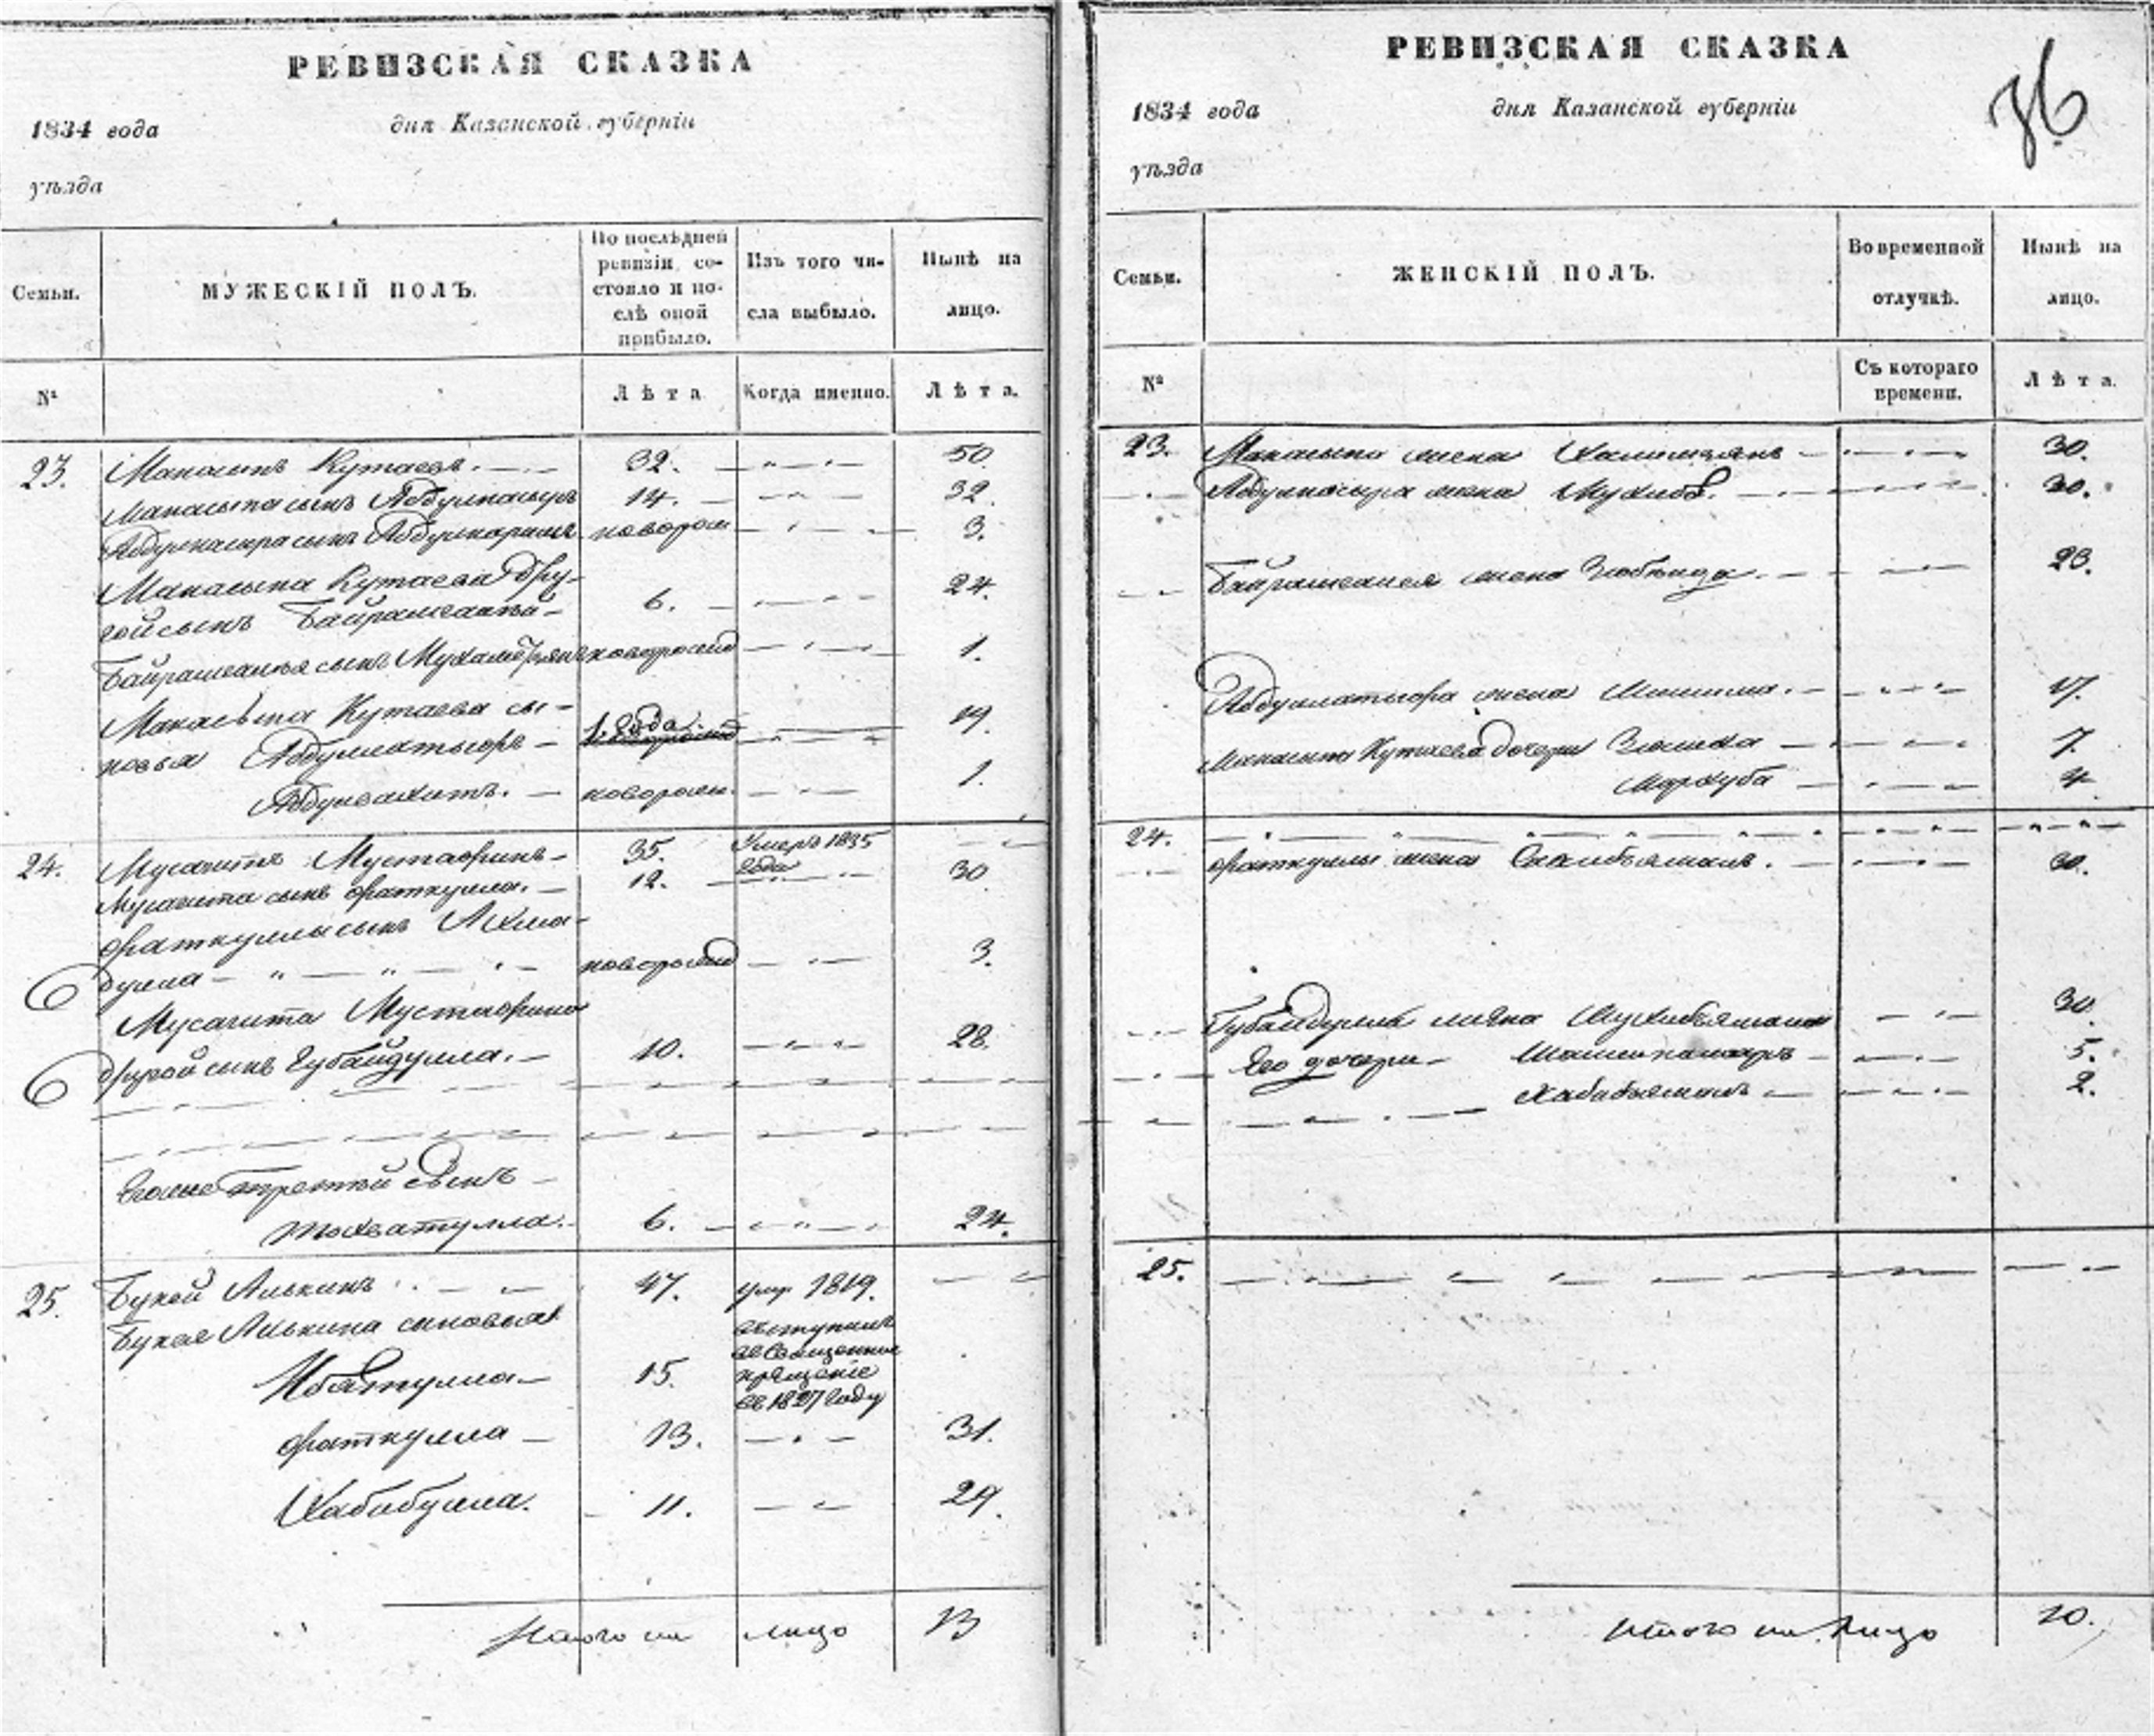 РЕВИЗСКАЯ СКАЗКА
1834 года
дня Казанской губерніи
уѣзда
Семьи.
МУЖЕСКІЙ ПОЛЪ.
По послѣдней
ревизіи со-
стояло и по-
слѣ оной
прибыло.
Изъ того чи-
сла выбыло.
Нынѣ на
лицо.
№
Лѣта
Когда именно.
Лѣта.
23. Манасыпъ Кутаевъ. 32. 50
Манасыпа сынъ Абдулнасыръ 14. 32
Абдулнасыра сынъ Абдулкаримъ новорож 3.
Манасыпа Кутаева дру-
гой сынъ 6. 24.
сынъ новорожд 1.
Манасыпа Кутаева сы-
новья Абдуллатыфъ 1. года. 19.
Абдулвахитъ. новорож. 1.
24. Мусагитъ Мустафинъ 35. Умеръ 1835
года
Мусагита сынъ Фаткулла. 12. 30
Фаткуллы сынъ Ахма-
дулла новорожд 3.
Мусагита Мустафина
другой сынъ Губайдулла. 10. 28.
Его же третей сынъ
Тохватулла. 6. 24.
25. Букей Алькинъ 47. умр 1819.
Букея Алькина сыновья
вступилъ
въ священное
крещеніе
въ 1827 году
Ибятулла 15.
Фаткулла 13. 31.
Хабибулла. 11. 29.
Итого на лицо 13
РЕВИЗСКАЯ СКАЗКА
36
1834 года
дня Казанской губерніи
уѣзда
Семьи.
ЖЕНСКІЙ ПОЛЪ.
Во временной
отлучкѣ.
Нынѣ на
лицо.
№
Съ котораго
времени.
Лѣта.
23. Манасыпа жена 30.
Абдулнасыра жена 30.
жена Зюбяида 23.
Абдуллатыфа жена 17.
Манасыпа Кутаева дочери Зюлиха 7.
Мархуба 4.
24.
Фаткуллы жена 30.
Губайдуллы жена 30
Его дочери 5.
2.
25.
Итого на лицо 10.